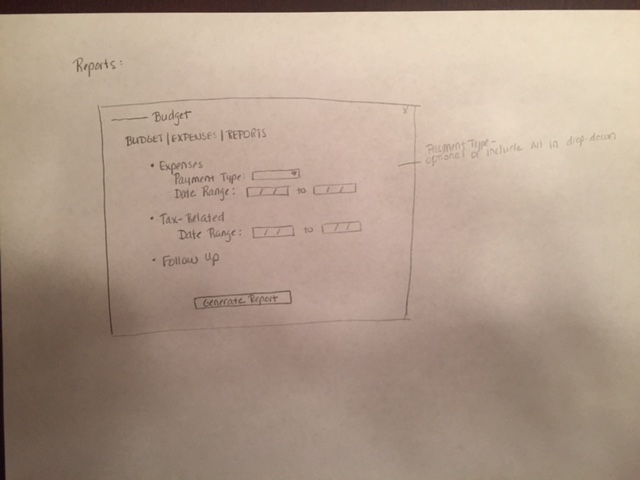 Reports:
Budget
x
BUDGET | EXPENSES | REPORTS
• Expenses
Payment Type:
Date Range: / / to / /
• Tax-Related
Date Range: / / to / /
• Follow Up
Generate Report
Payment Type-
optional or include All in drop-down